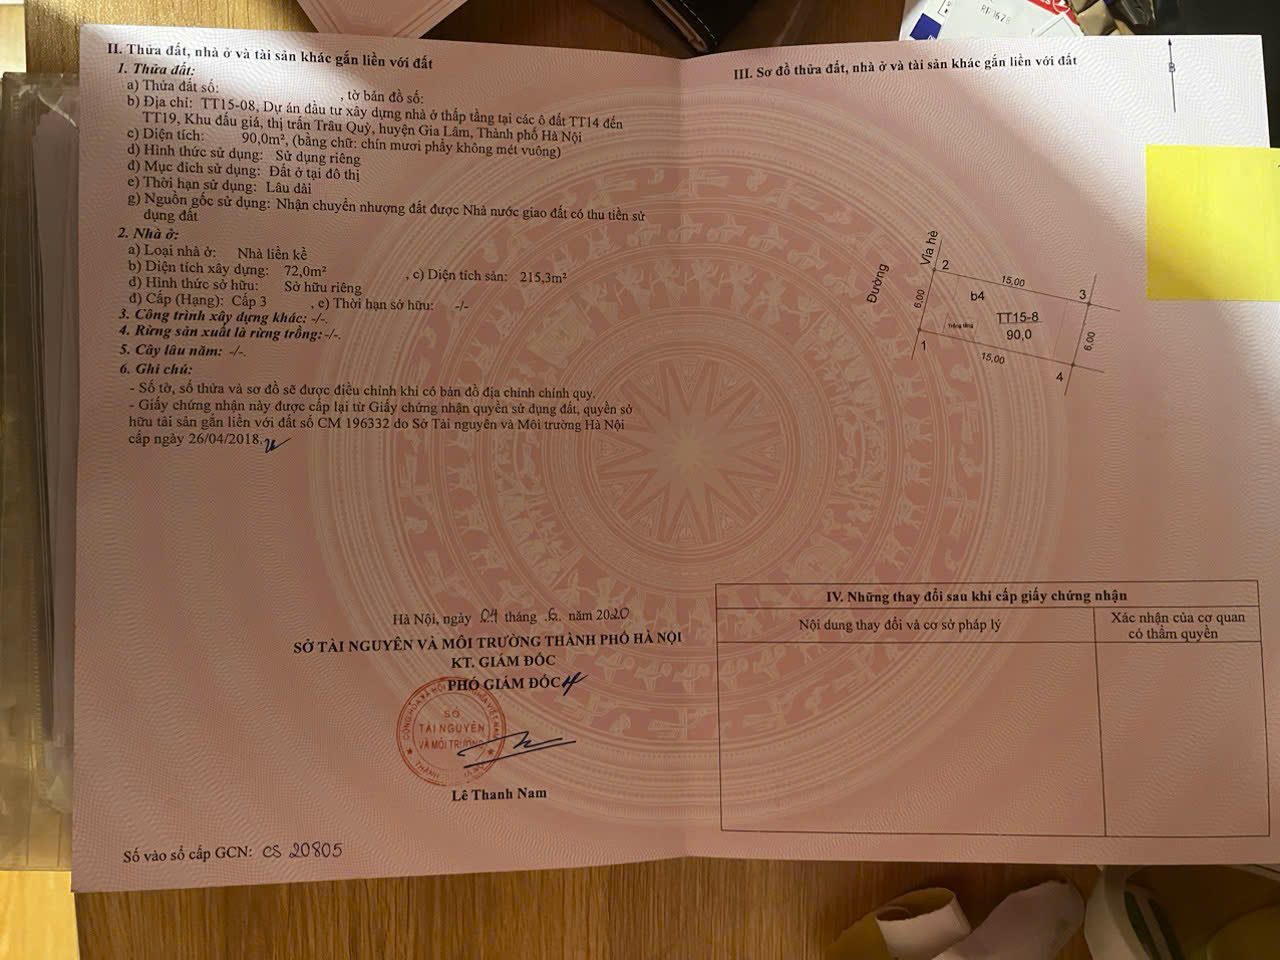 II. Thửa đất, nhà ở và tài sản khác gắn liền với đất
1. Thửa đất:
a) Thửa đất số: , tờ bản đồ số:
b) Địa chỉ: TT15-08, Dự án đầu tư xây dựng nhà ở thấp tầng tại các ô đất TT14 đến
TT19, Khu đấu giá, thị trấn Trâu Quỳ, huyện Gia Lâm, Thành phố Hà Nội
c) Diện tích: 90,0m², (bằng chữ: chín mươi phẩy không mét vuông)
d) Hình thức sử dụng: Sử dụng riêng
đ) Mục đích sử dụng: Đất ở tại đô thị
e) Thời hạn sử dụng: Lâu dài
g) Nguồn gốc sử dụng: Nhận chuyển nhượng đất được Nhà nước giao đất có thu tiền sử
dụng đất
2. Nhà ở:
a) Loại nhà ở: Nhà liền kề
b) Diện tích xây dựng: 72,0m² , c) Diện tích sàn: 215,3m²
d) Hình thức sở hữu: Sở hữu riêng
đ) Cấp (Hạng): Cấp 3 , e) Thời hạn sở hữu: -/-
3. Công trình xây dựng khác: -/-.
4. Rừng sản xuất là rừng trồng: -/-.
5. Cây lâu năm: -/-.
6. Ghi chú:
- Số tờ, số thửa và sơ đồ sẽ được điều chỉnh khi có bản đồ địa chính chính quy.
- Giấy chứng nhận này được cấp lại từ Giấy chứng nhận quyền sử dụng đất, quyền sở
hữu tài sản gắn liền với đất số CM 196332 do Sở Tài nguyên và Môi trường Hà Nội
cấp ngày 26/04/2018.
Hà Nội, ngày 04 tháng .6. năm 2020
SỞ TÀI NGUYÊN VÀ MÔI TRƯỜNG THÀNH PHỐ HÀ NỘI
KT. GIÁM ĐỐC
PHÓ GIÁM ĐỐC
SỞ
TÀI NGUYÊN
VÀ MÔI TRƯỜNG
Lê Thanh Nam
Số vào sổ cấp GCN: CS 20805
III. Sơ đồ thửa đất, nhà ở và tài sản khác gắn liền với đất
B
Đường
Vỉa hè
2
15,00
3
b4
6,00
TT15-8
90,0
6,00
1
15,00
4
IV. Những thay đổi sau khi cấp giấy chứng nhận
Nội dung thay đổi và cơ sở pháp lý
Xác nhận của cơ quan
có thẩm quyền